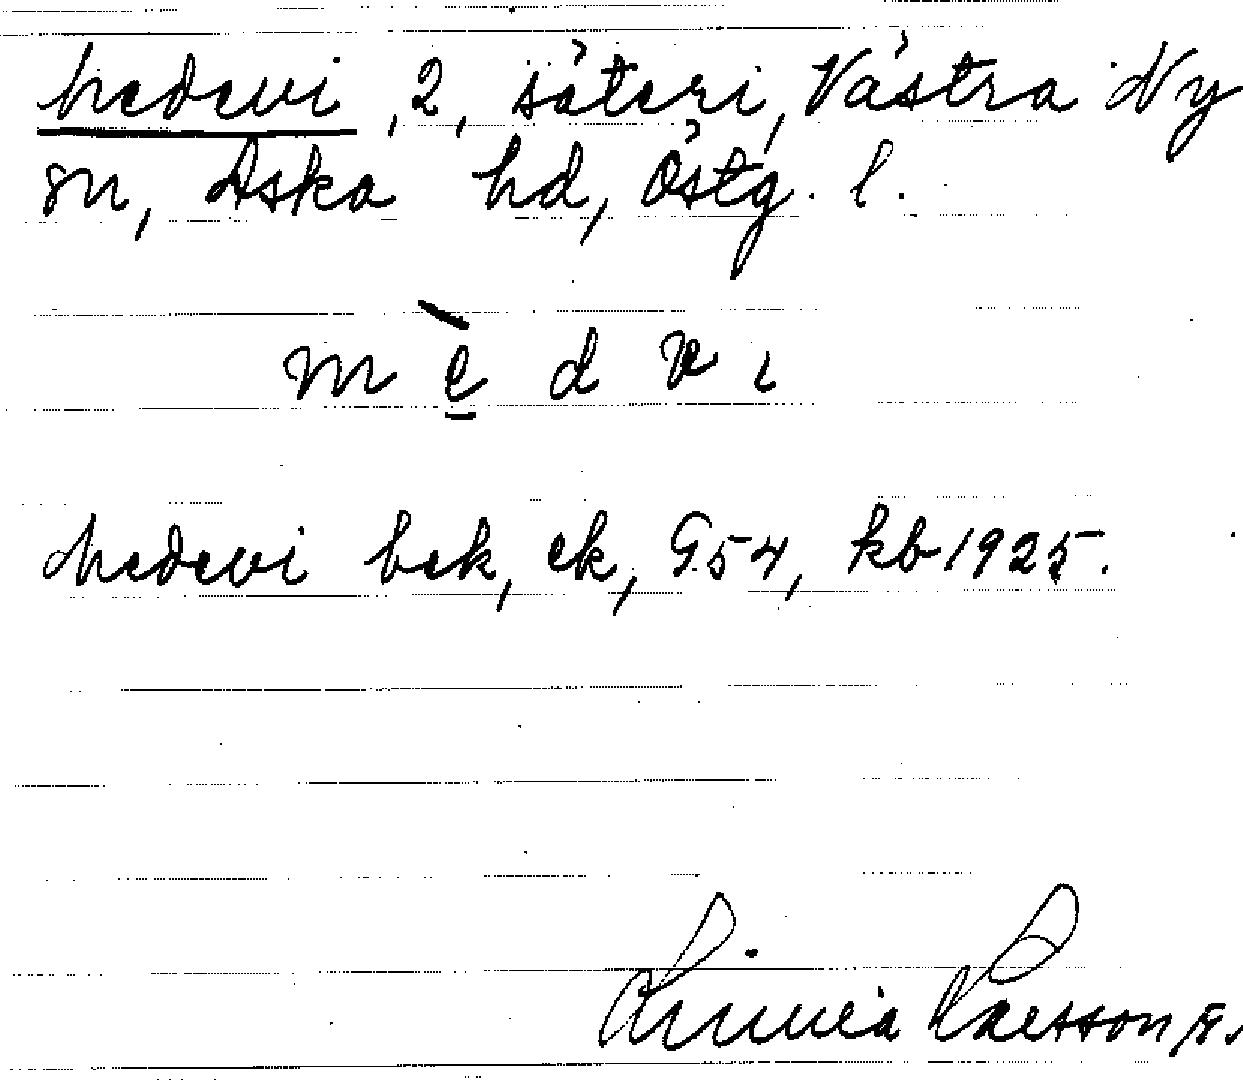 Medevi, 2, säteri, Västra Ny
sn, Aska hd, Östg. l.
m è d v ι
Medevi bek, ek, G54, kb 1925.
Linnéa Larsson